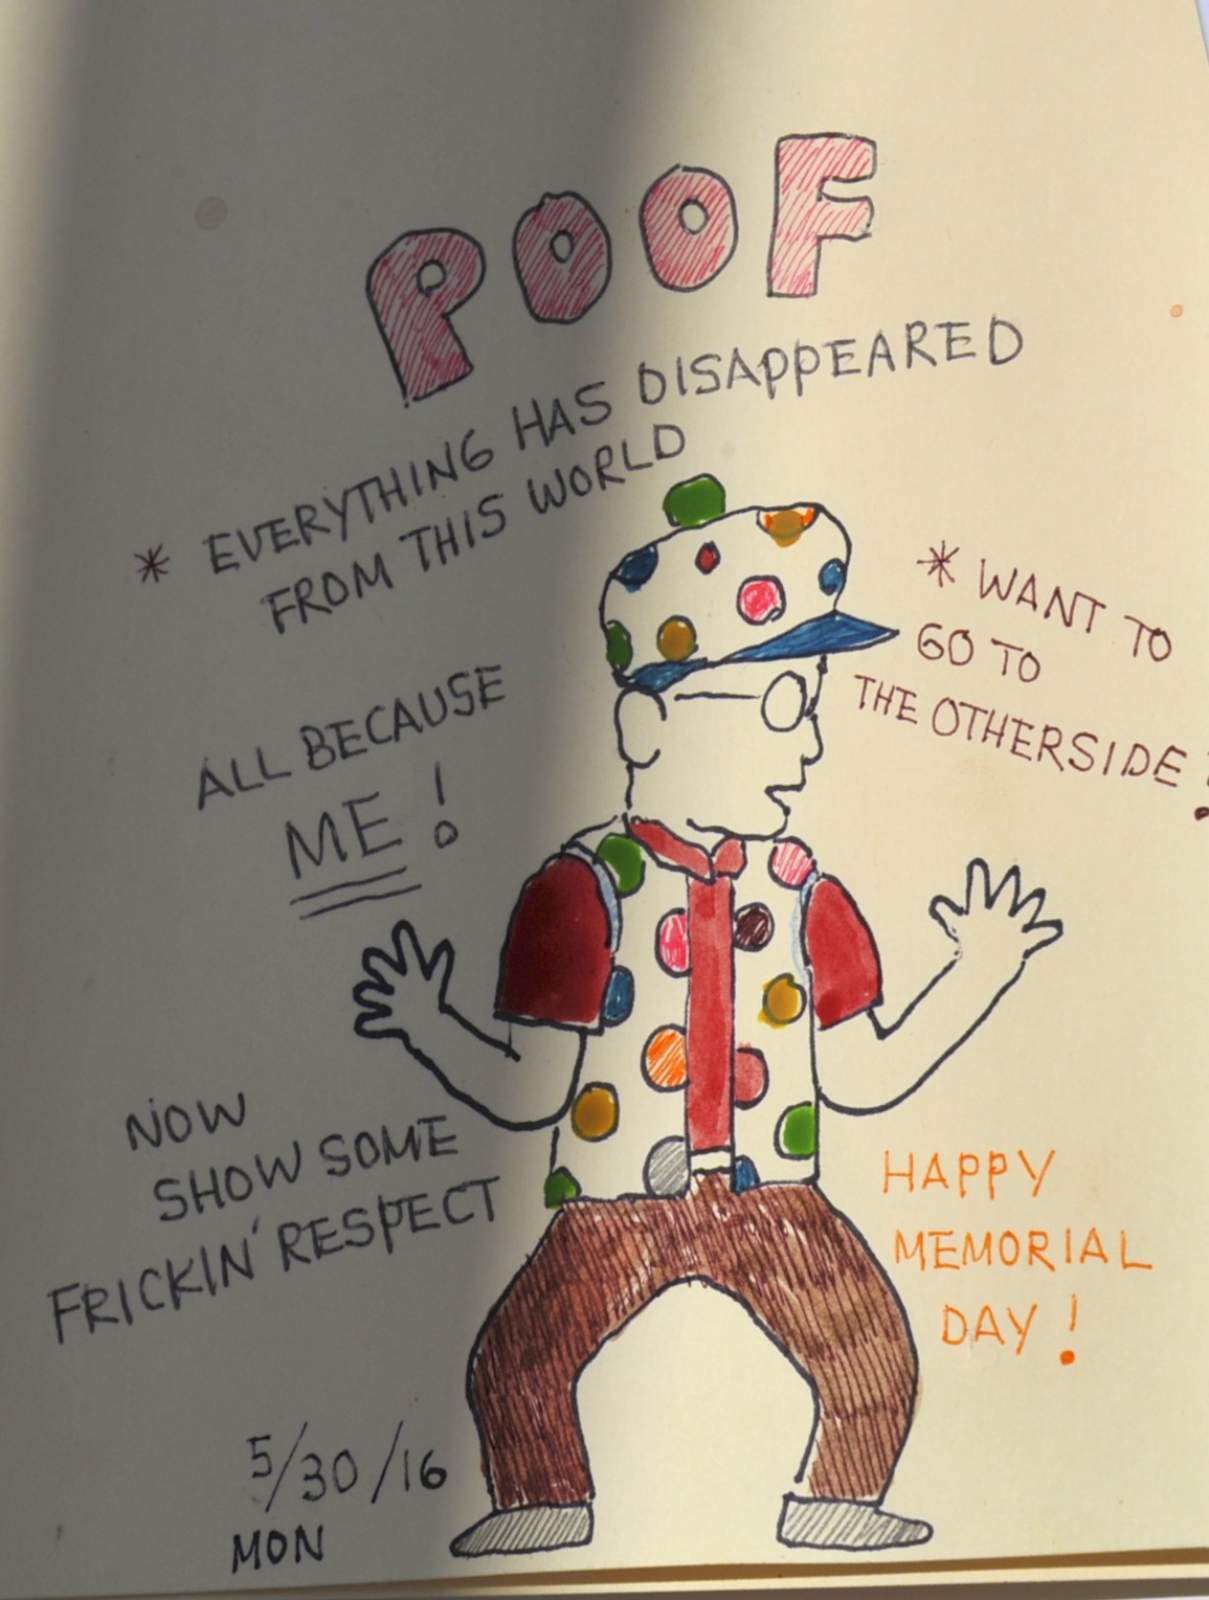 POOF
* EVERYTHING HAS DISAPPEARED
FROM THIS WORLD
* WANT TO
GO TO
THE OTHERSIDE ?
ALL BECAUSE
ME!
NOW
SHOW SOME
FRICKIN' RESPECT
HAPPY
MEMORIAL
DAY!
5/30/16
MON